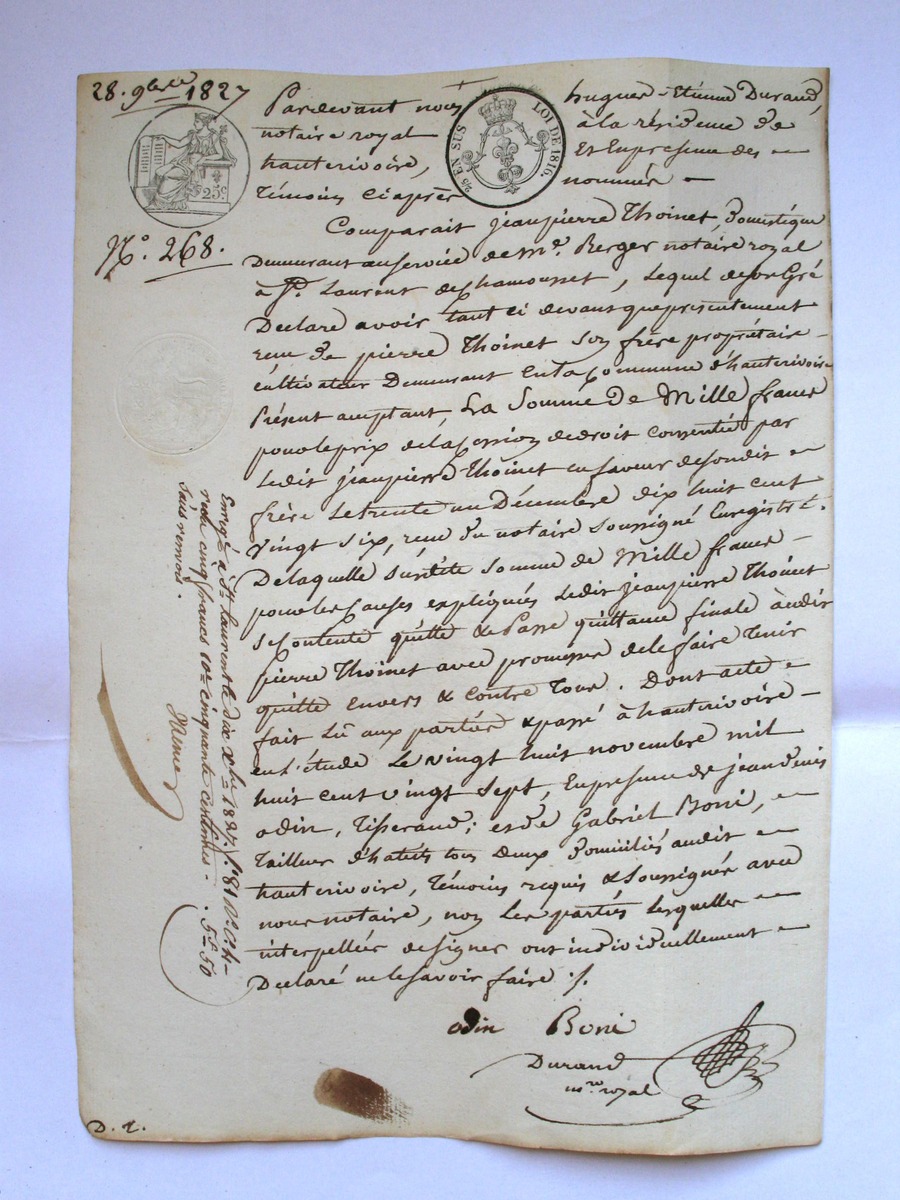 28. 9bre 1827
Pardevant nous hugues-Etienne Durand,
notaire royal à la résidence de
hauterivoire, Et Enpresence des
témoins ciaprès nommés
25c.
2/5 EN SUS LOI DE 1816.
No. 268.
Comparait jeanpierre Thoinet, Domestique
Demeurant auservice de Me. Berger notaire royal
à St. Laurent de chamousset, Lequel desongré
Declare avoir tant ci devantquepresentement
recu de pierre Thoinet son frère propriétaire
cultivateur Demeurant enla Commune d'hauterivoire
Présent acceptant, La Somme De Mille francs
pourleprix delaCession dedroit consentie par
Ledit jeanpierre Thoinet enfaveur desondit
frère Letrente un Décembre dix huit cent
vingt six, recue du notaire soussigné Enregistrée.
Delaquelle susdite somme de Mille francs
pourles Causes expliquées Ledit jeanpierre Thoinet
seContente quitte & Passe quittance finale audit
pierre Thoinet avec promesse dele faire tenir
quitte envers & contre tous. Dont acte
fait Lû aux parties & passé à hauterivoire
en L'étude Le vingt huit novembre mil
huit cent vingt sept, Enpresence de jeandenis
odin, Tisserand; et de Gabriel Boni,
Tailleur d'habits tous deux Domiciliés audit
hauterivoire, témoins requis & soussignés avec
nous notaire, non Les parties Lesquelles
interpellées designer ont individuellement
Declaré nelesavoir faire ./.
odin Boni
Durand
nre royal
Enregé à St. Laurent le dix Xbre 1827. fo 81
reçu cinq francs 10me cinquante centimes.
sans renvoi. 5f 50
D. 2.